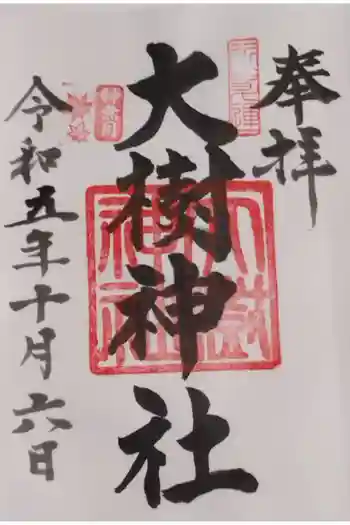 奉拝
大樹神社
大樹神社
令和五年十月六日